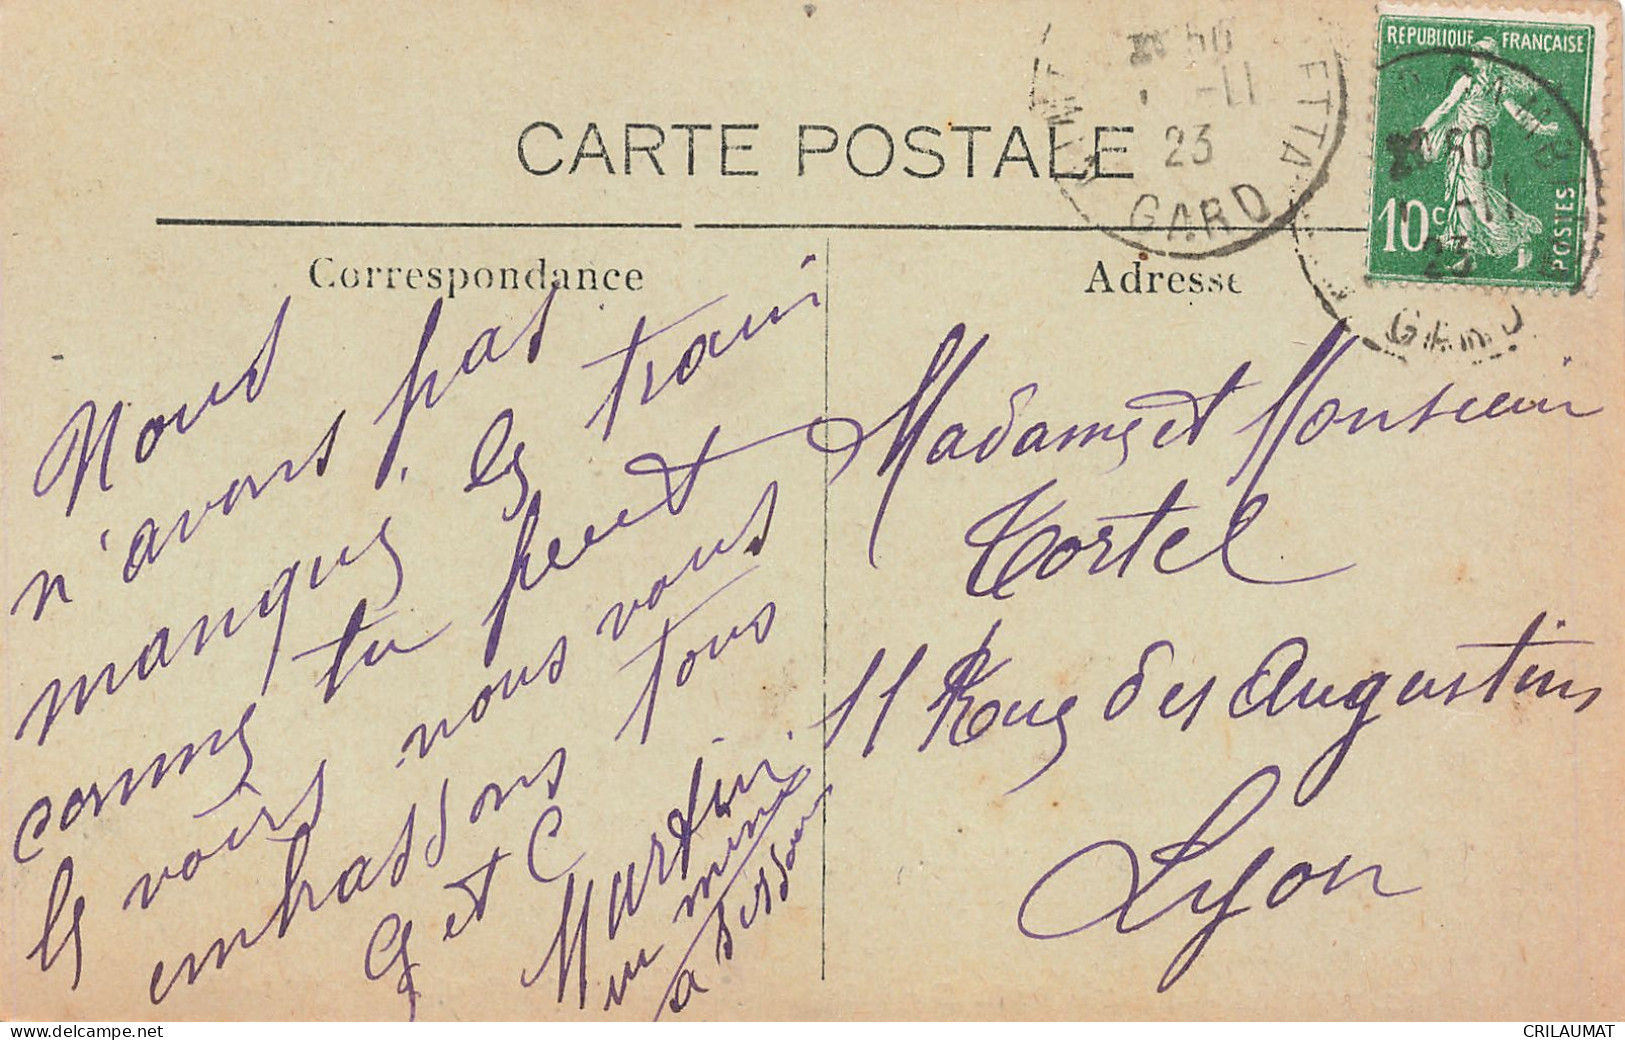 CARTE POSTALE
Correspondance
Nous
n'avons pas
manqué le train
comme tu peut
le voirs nous vous
embrassons tous
G et C
Martin
Adresse
Madame et Monsieur
Tortel
11 Rue des Augustins
Lyon
REPUBLIQUE FRANÇAISE
10c
POSTES
50
-11
23
GARD
-11
23
delcampe.net
CRILAUMAT